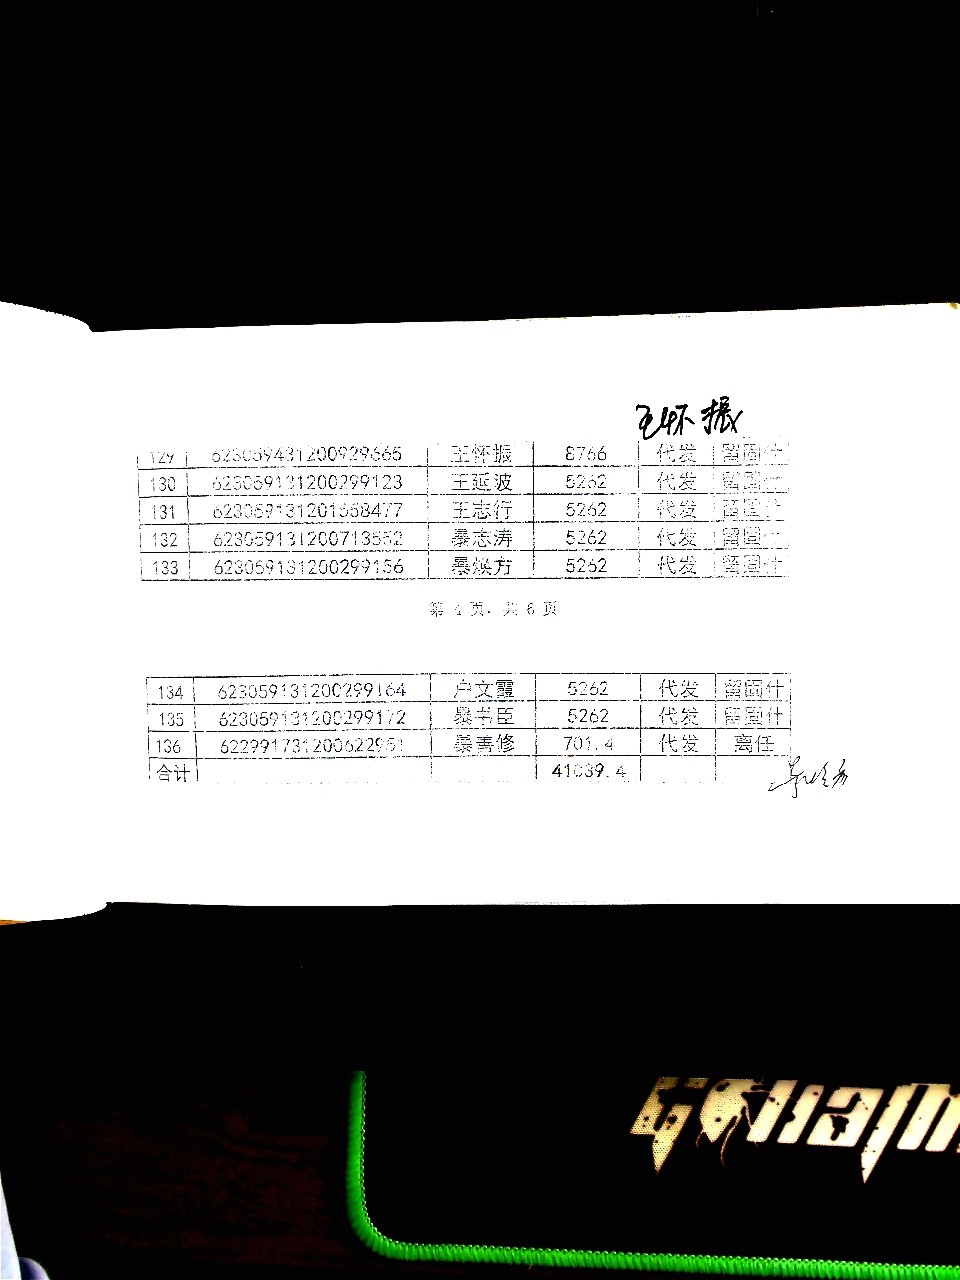 王怀振
129 623059431200929665 王怀振 8766 代发 留固什
130 623059131200299123 王延波 5262 代发 留固什
131 623059131201558477 王志行 5262 代发 留固什
132 623059131200713552 暴志涛 5262 代发 留固什
133 623059131200299156 暴焕方 5262 代发 留固什
第 4 页，共 6 页
134 623059131200299164 卢文霞 5262 代发 留固什
135 623059131200299172 暴书臣 5262 代发 留固什
136 622991731200622951 暴善修 701.4 代发 离任
合计 41039.4